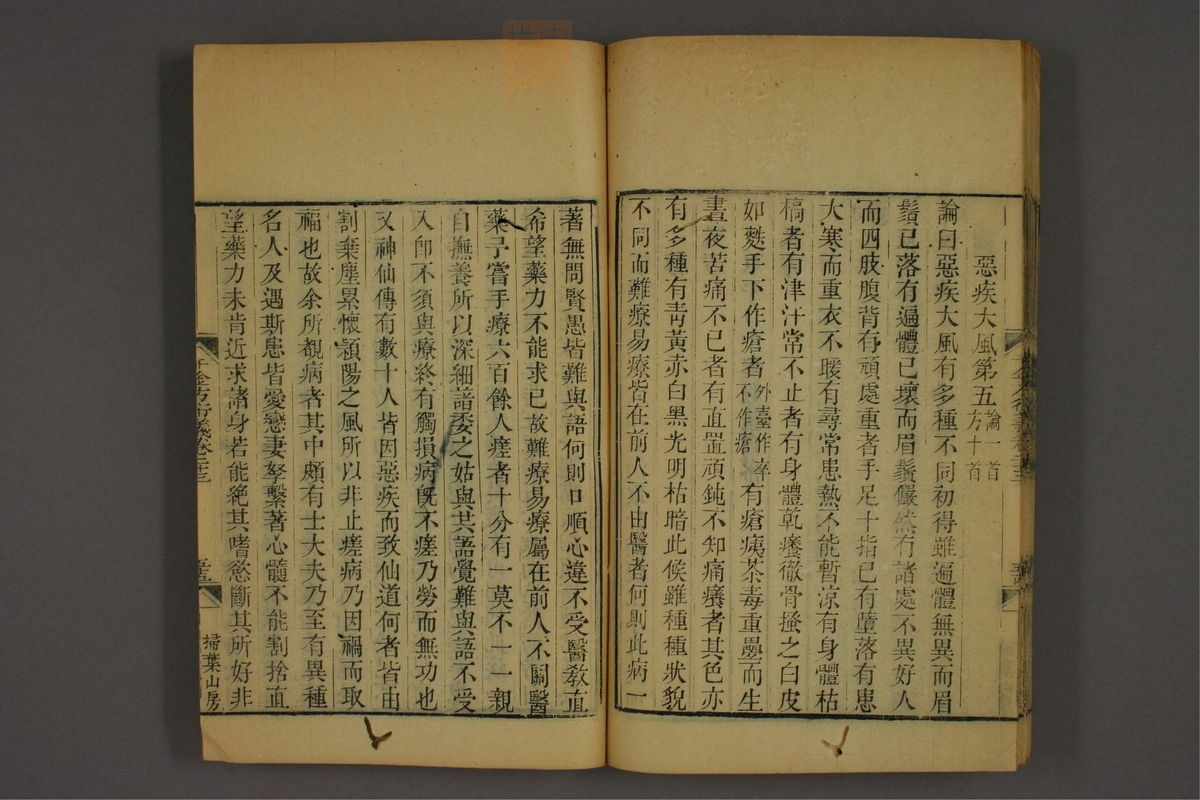 惡疾大風第五論一首方十首
論曰惡疾大風有多種不同初得雖遍體無異而眉
鬚已落有遍體已壞而眉鬚儼然有諸處不異好人
而四肢腹背有頑處重者手足十指已有墮落有患
大寒而重衣不暖有尋常患熱不能暫涼有身體枯
槁者有津汁常不止者有身體乾癢徹骨搔之白皮
如麩手下作瘡者外臺作卒不作瘡有瘡痍荼毒重疊而生
晝夜苦痛不已者有直置頑鈍不知痛癢者其色亦
有多種有靑黃赤白黑光明枯暗此候雖種種狀貌
不同而難療易療皆在前人不由醫者何則此病一
著無問賢愚皆難與語何則口順心違不受醫教直
希望藥力不能求己故難療易療屬在前人不關醫
藥予嘗手療六百餘人瘥者十分有一莫不一一親
自撫養所以深細諳委之姑與其語覺難與語不受
入卽不須與療終有觸損病旣不瘥乃勞而無功也
又神仙傳有數十人皆因惡疾而致仙道何者皆由
割棄塵累懷潁陽之風所以非止瘥病乃因禍而取
福也故余所覩病者其中頗有士大夫乃至有異種
名人及遇斯患皆愛戀妻孥繫著心髓不能割捨直
望藥力未肯近求諸身若能絶其嗜慾斷其所好非
千金方衍義卷二十三
掃葉山房